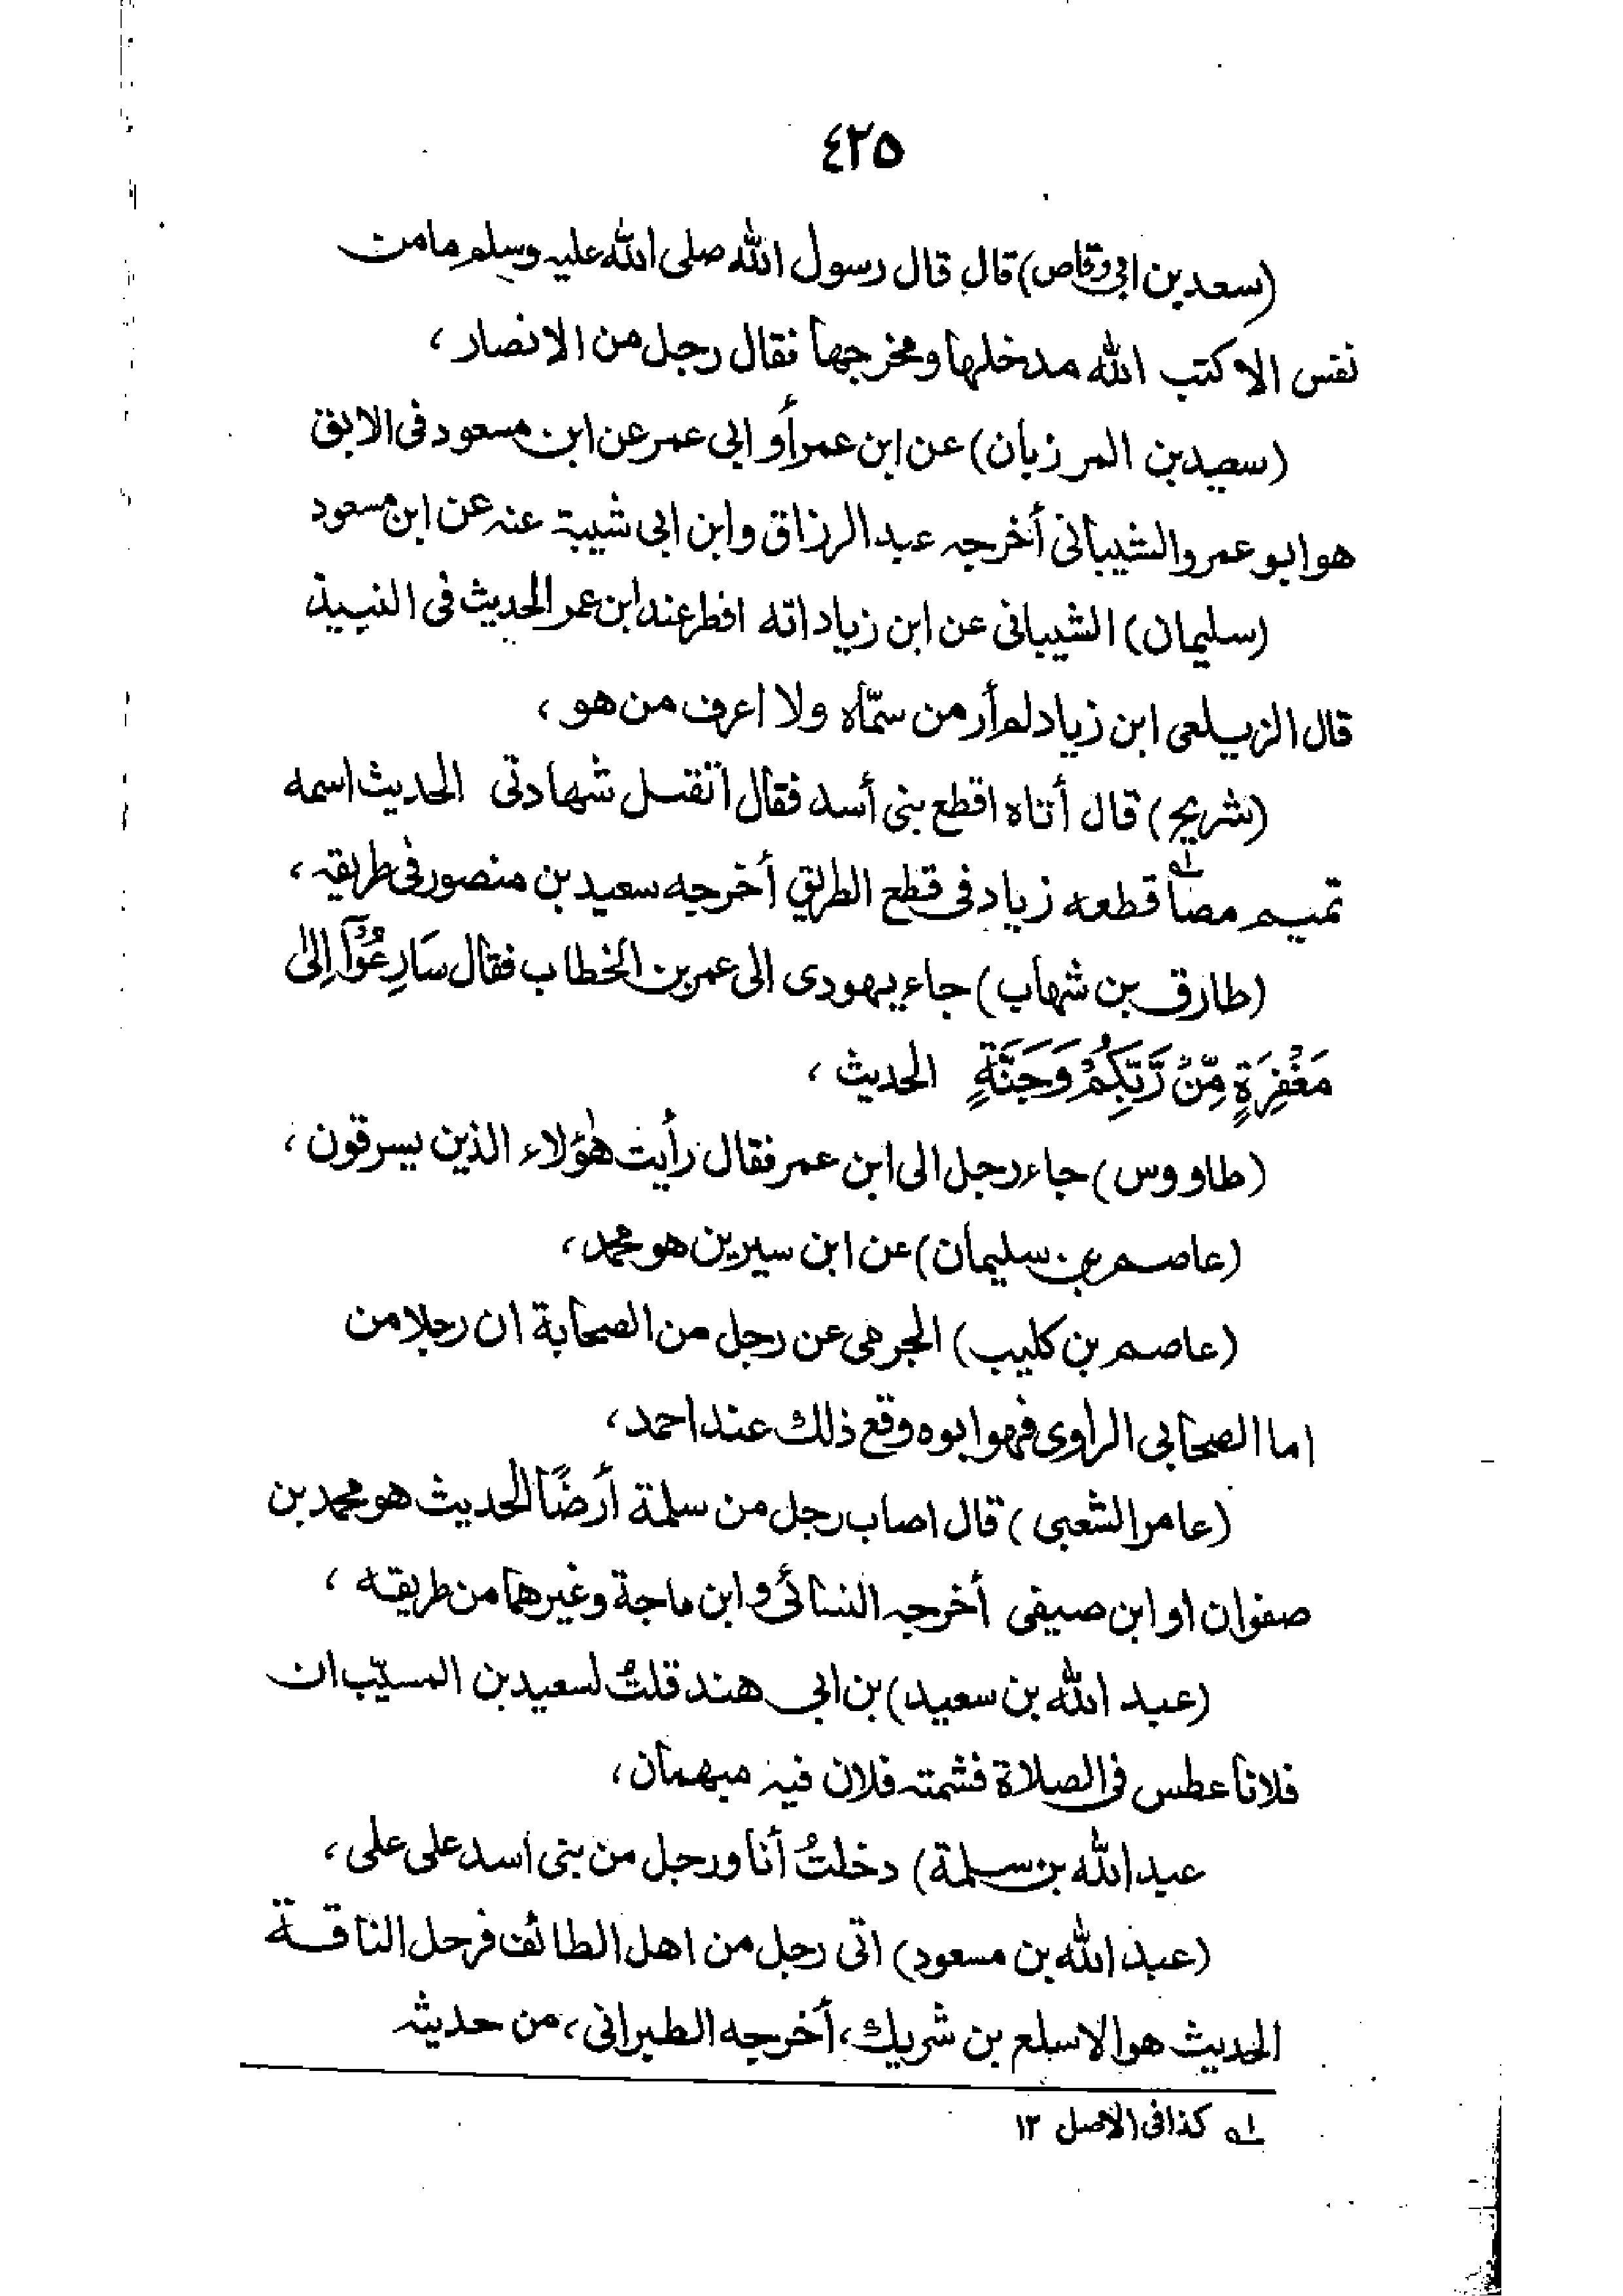 ٤٢٥
(سعد بن ابی وقاص) قال قال رسول الله صلی الله علیه وسلم ما من
نفس الا کتب الله مدخلها ومخرجها فقال رجل من الانصار ،
(سعید بن المرزبان) عن ابن عمر أو ابی عمر عن ابن مسعود فی الابق
هو ابو عمرو الشیبانی أخرجه عبد الرزاق وابن ابی شیبة عنه عن ابن مسعود
(سلیمان) الشیبانی عن ابن زیاد انّه افطر عند ابن عمر الحدیث فی النبیذ
قال الزیلعی ابن زیاد لم أر من سمّاه ولا اعرف من هو ،
(شریح) قال أتاه اقطع بنی أسد فقال اتقبل شهادتی الحدیث اسمه
تمیم مصا ؎۱ قطعه زیاد فی قطع الطریق أخرجه سعید بن منصور فی طریقه ،
(طارق بن شهاب) جاء یهودی الی عمر بن الخطاب فقال سَارِعُوْۤا اِلیٰ
مَغْفِرَةٍ مِّنْ رَّبِّكُمْ وَجَنَّةٍ الحدیث ،
(طاووس) جاء رجل الی ابن عمر فقال رأیت هٰؤلاء الذین یسرقون ،
(عاصم بن سلیمان) عن ابن سیرین هو محمد ،
(عاصم بن کلیب) الجرمی عن رجل من الصحابة ان رجلا من
اما الصحابی الراوی فهو ابوه وقع ذلك عند احمد ،
(عامر الشعبی) قال اصاب رجل من سلمة أرضًا الحدیث هو محمد بن
صفوان او ابن صیفی أخرجه النسائی و ابن ماجة وغیرهما من طریقه ،
(عبد الله بن سعید) بن ابی هند قلتُ لسعید بن المسیّب ان
فلانا عطس فی الصلاة فشمته فلان فیه مبهمان ،
عبد الله بن سلمة) دخلتُ أنا ورجل من بنی اسد علی علی ،
(عبد الله بن مسعود) اتی رجل من اهل الطائف فرحل الناقة
الحدیث هو الاسلع بن شریك ، أخرجه الطبرانی ، من حدیثه
؎۱ کذا فی الاصل ۱۲